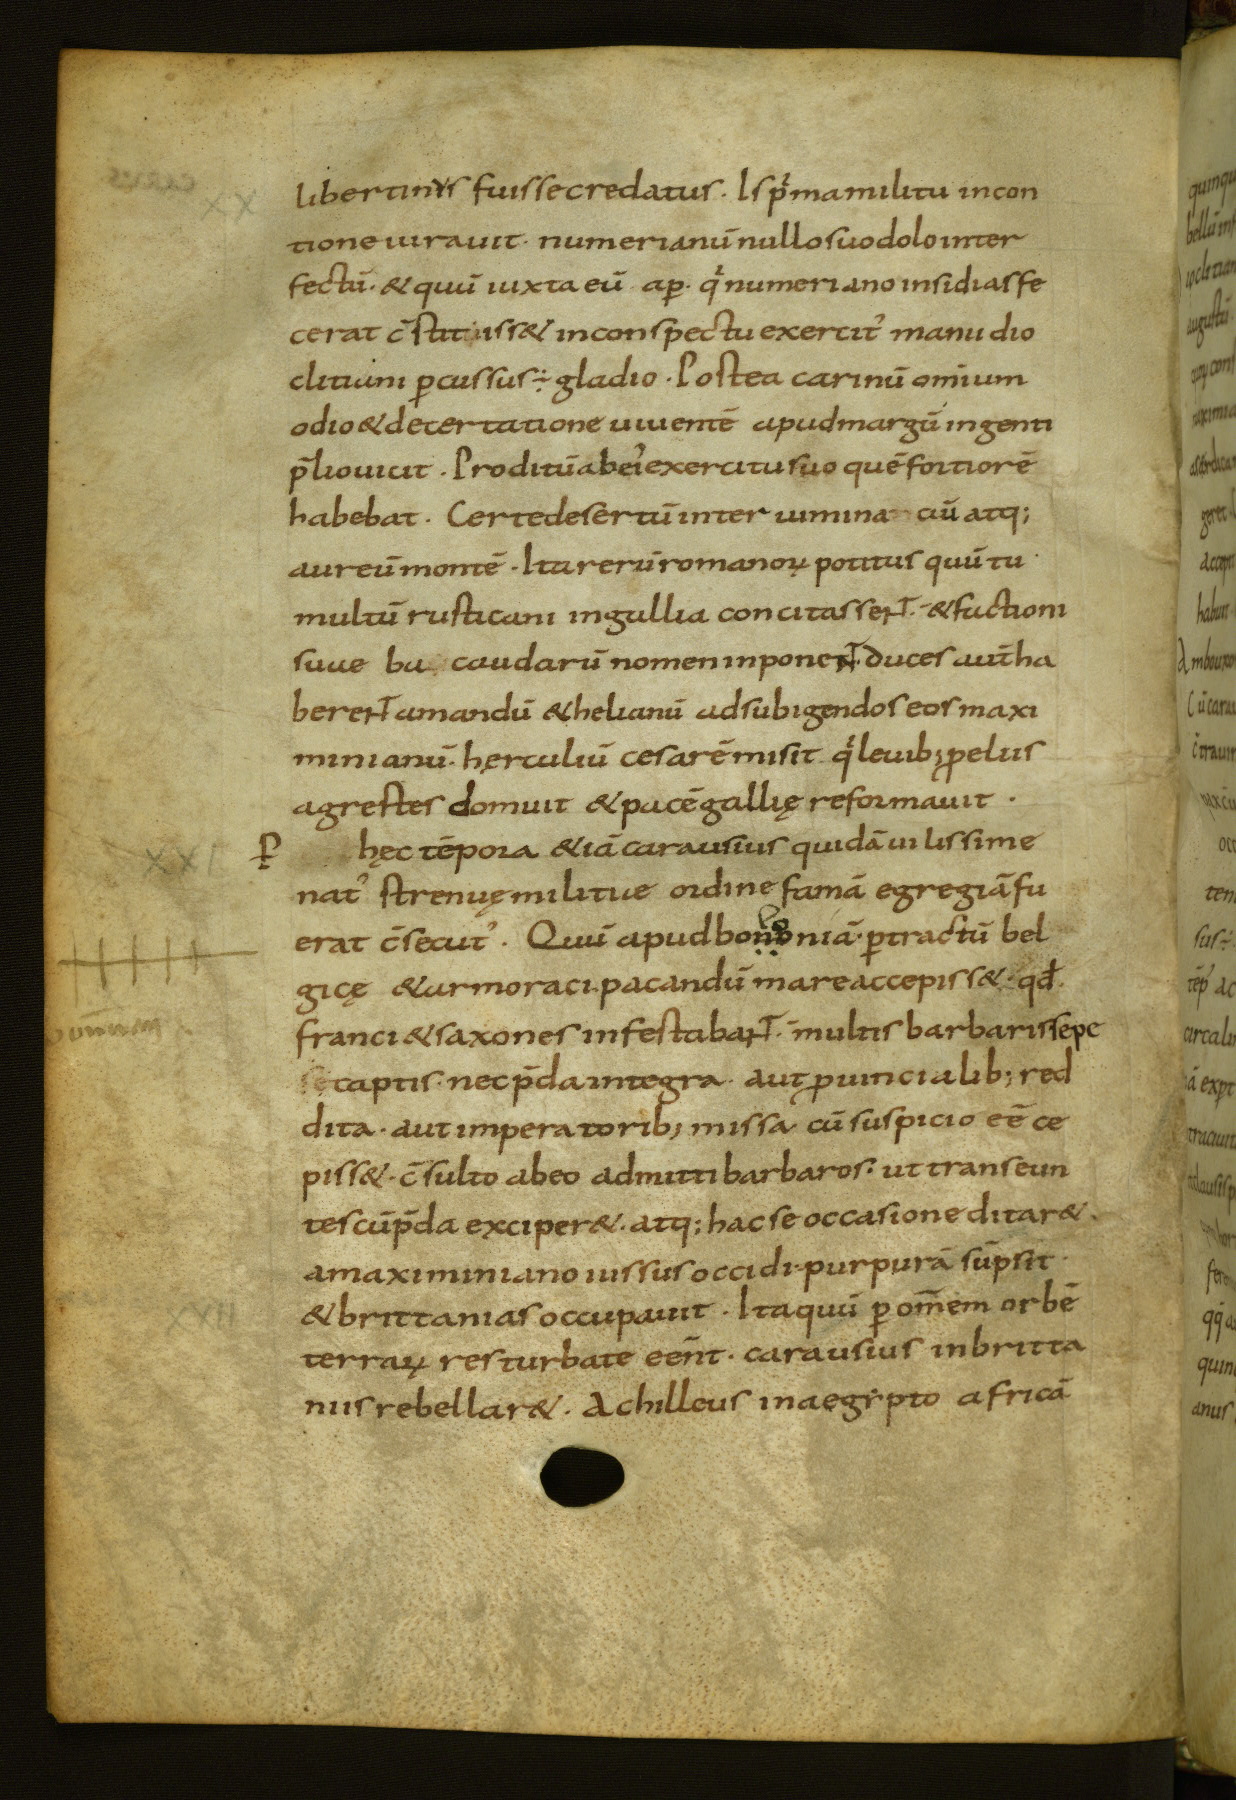 libertinus fuisse credatus. Is p̄ma militu in con
tione iurauit. numerianū nullo suo dolo inter
fectū. & quū iuxta eū ap. q' numeriano insidias fe
cerat c̄stituiss& in conspectu exercit' manu dio
clitiani p̱cussus ÷ gladio. Postea carinū omīum
odio & detertatione uiuentē apud margū ingenti
p̄lio uicit. Proditū ab ei' exercitu suo quē fortiorē
habebat. Certe desertū inter uimina ciū atq;
aureū montē. Ita rerū romanoꝝ potitus quū tu
multū rusticani in gallia concitassent. & factioni
suae ba caudarū nomen inponent. duces aut̄ ha
berent amandū & helianū ad subigendos eos maxi
minianū. hęrculiū cesarē misit q' leuib; p̱eliis
agrestes domuit & pacē gallię reformauit.
P̱ hęc tēpora & iā carausius quidā uilissime
nat' strenuę militiae ordine famā egregiā fu
erat c̄secut'. Quū apud bononiā. p̱ tractū bel
gicę & armoraci. pacandū mare accepiss&. qđ
franci & saxones infestabant. multis barbaris sepe
captis. nec p̄da integra. aut p̱uincialib; red
dita. aut imperatorib; missa cū suspicio eē ce
piss&. c̄sulto ab eo admitti barbaros. ut transeun
tes cū p̄da exciper&. atq; hac se occasione ditar&.
a maximiniano iussus occidi. purpurā sūpsit
& brittanias occupauit. Ita quū p̱ om̄em orbē
terraꝝ res turbate eēnt. carausius in britta
niis rebellar&. Achilleus in aegipto africā